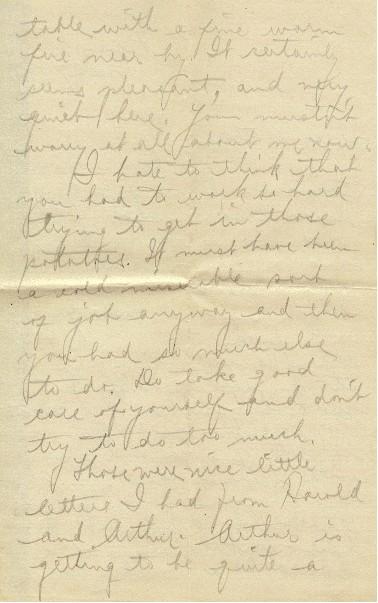 table with a fine warm
fire near by. It certainly
seems pleasant, and very
quiet here. You mustn't
worry at all about me now.
I hate to think that
you had to work so hard
trying to get in those
potatoes. It must have been
a cold miserable sort
of job anyway and then
you had so much else
to do. Do take good
care of yourself and don't
try to do too much.
Those were nice little
letters I had from Harold
and Arthur. Arthur is
getting to be quite a